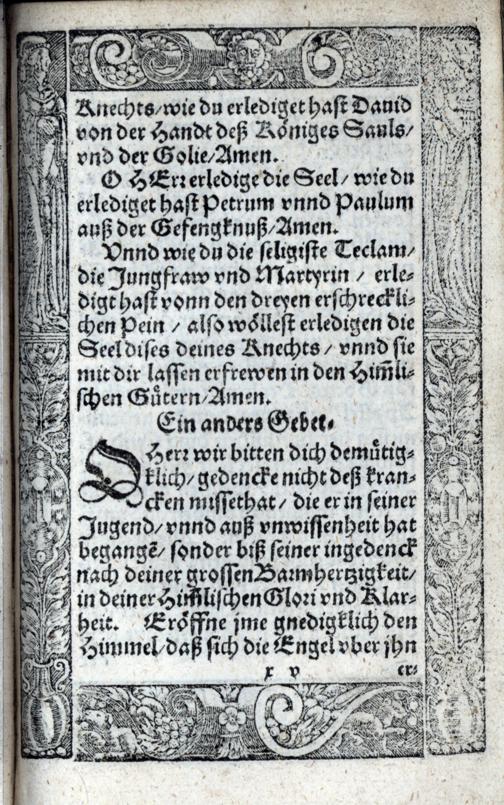 Knechts/wie du erlediget hast Dauid
von der Handt deß Königes Sauls/
vnd der Golie/Amen.
O HErr erledige die Seel/ wie du
erlediget hast Petrum vnnd Paulum
auß der Gefengknuß/Amen.
Vnnd wie du die seligiste Teclam/
die Jungfraw vnd Martyrin / erle-
digt hast vonn den dreyen erschreckli-
chen Pein / also wöllest erledigen die
Seel dises deines Knechts/ vnnd sie
mit dir lassen erfrewen in den Him̃li-
schen Gütern/Amen.
Ein anders Gebet.
O Herr wir bitten dich demütig-
klich/ gedencke nicht deß kran-
cken missethat/ die er in seiner
Jugend/ vnnd auß vnwissenheit hat
begangẽ/ sonder biß seiner ingedenck
nach deiner grossen Barmhertzigkeit/
in deiner Him̃lischen Glori vnd Klar-
heit. Eröffne jme gnedigklich den
Himmel/daß sich die Engel vber jhn
x v er-